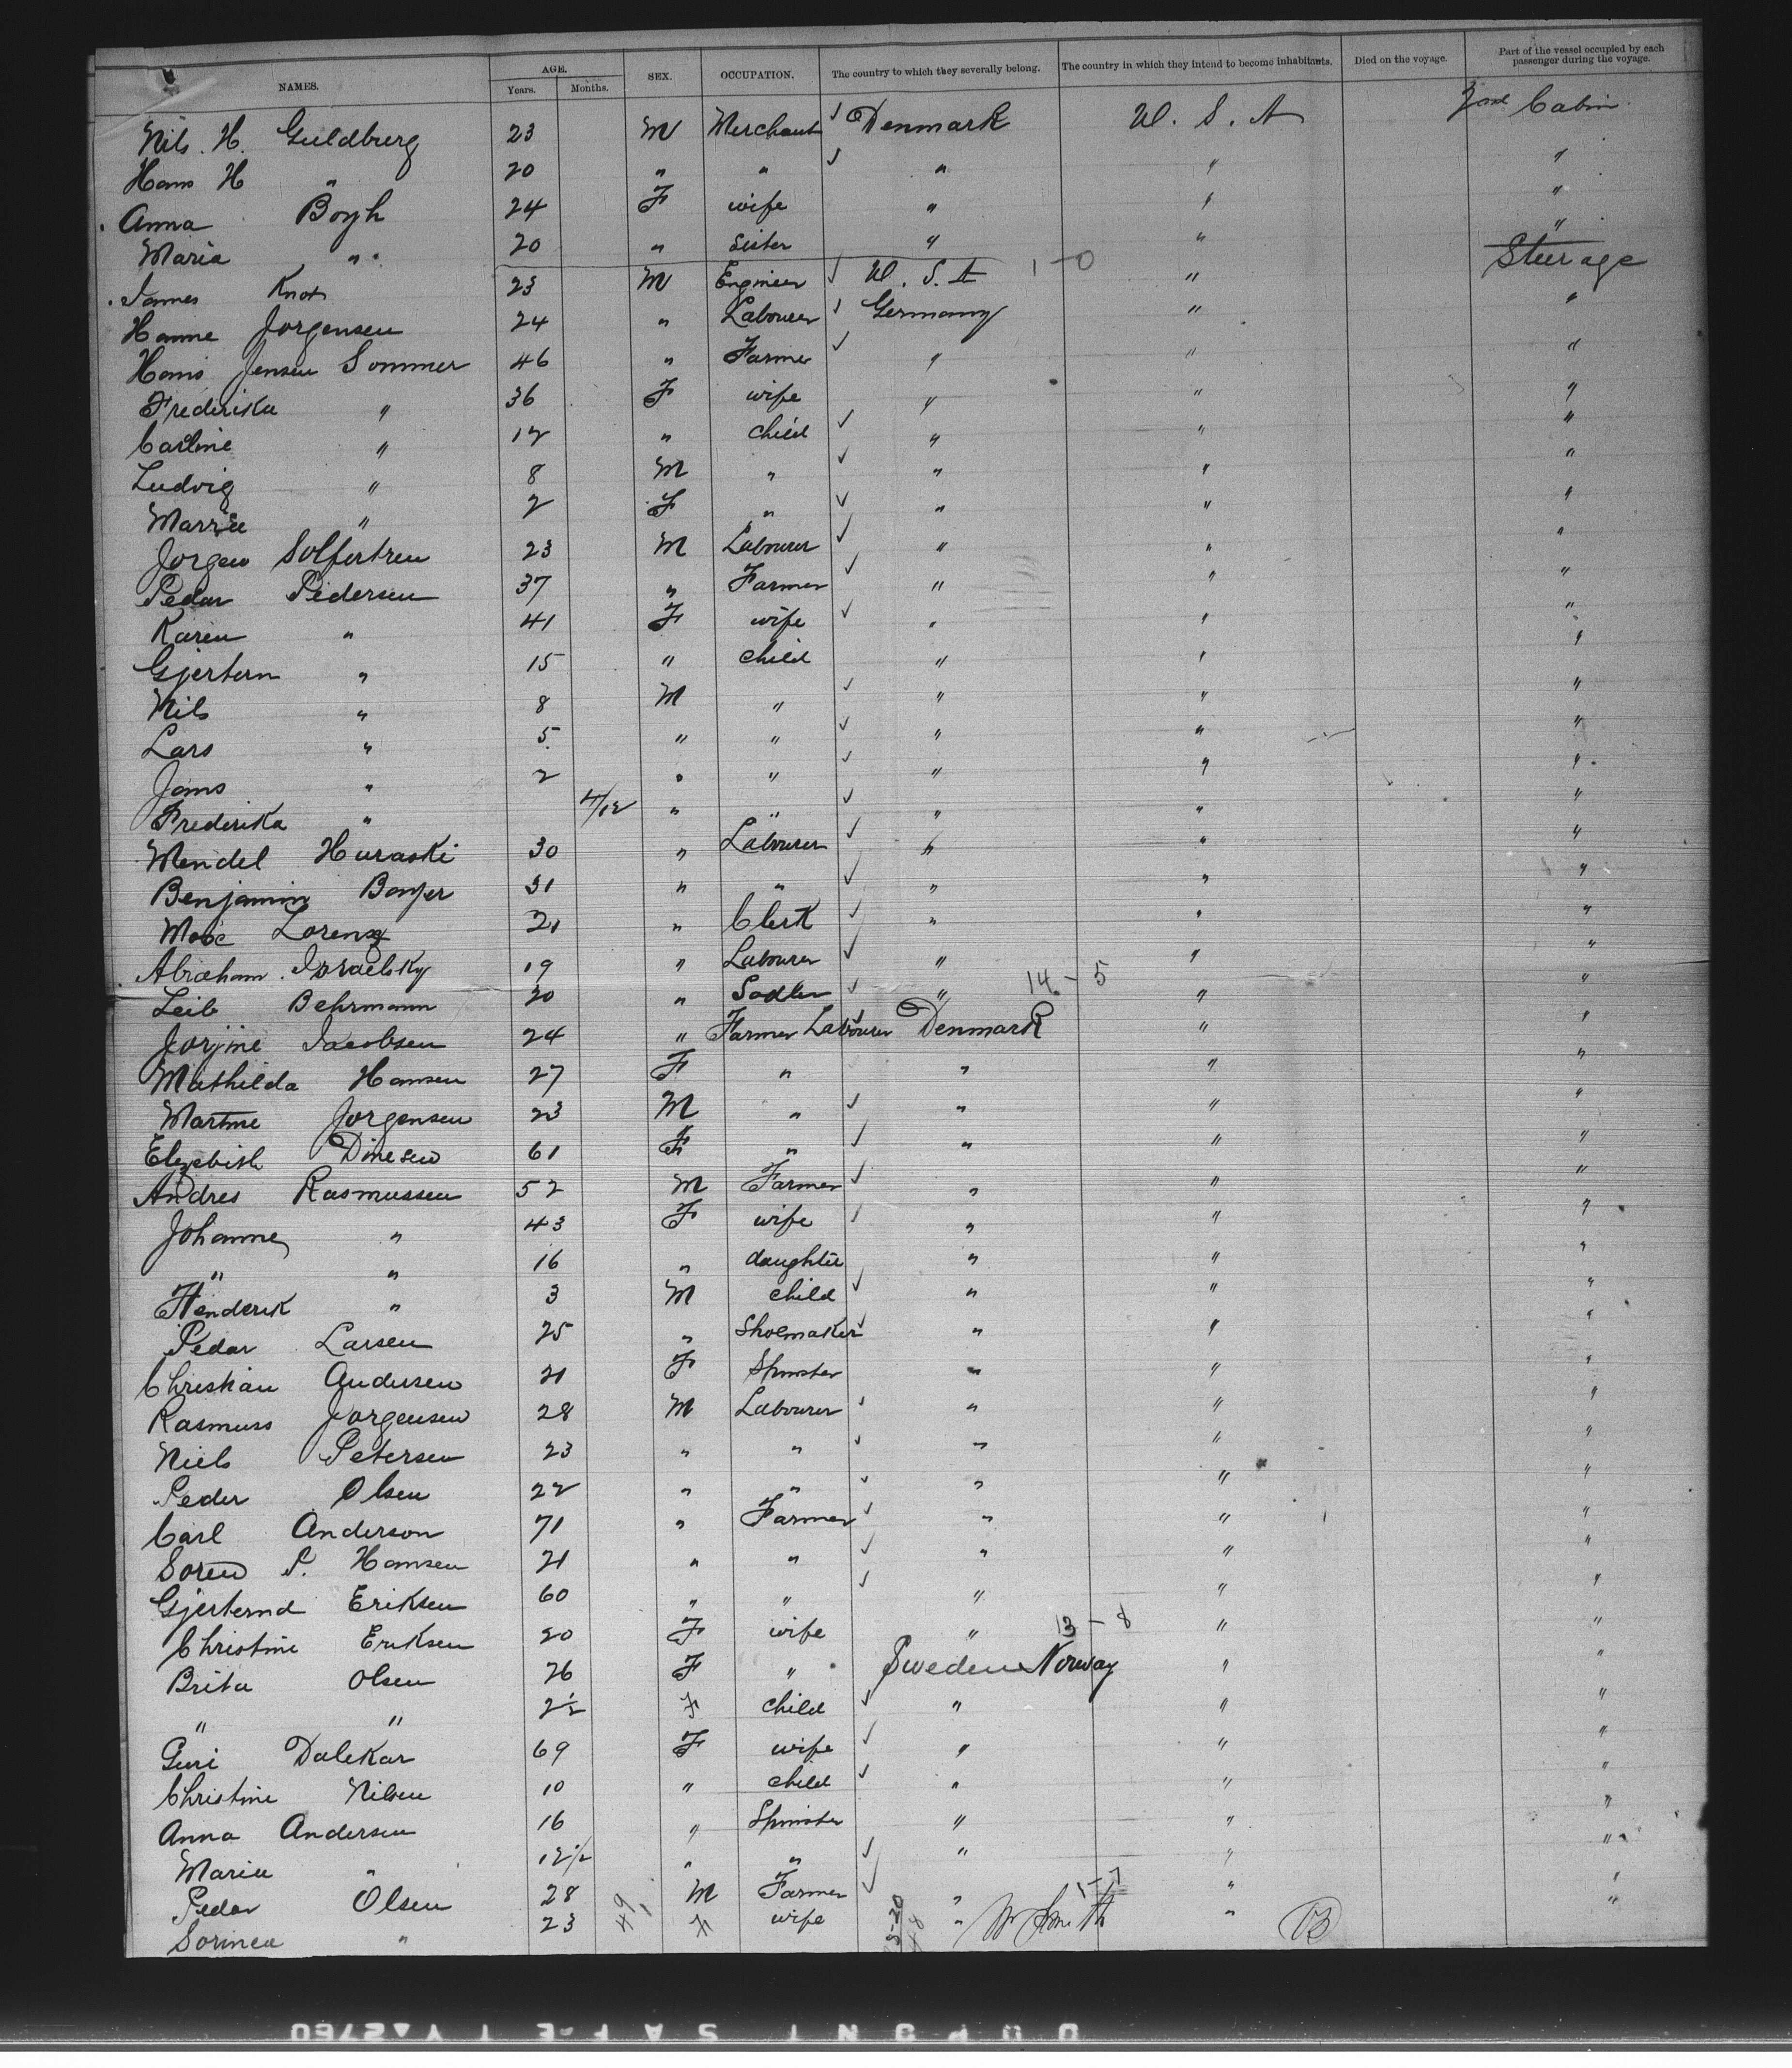 NAMES. AGE. Years. Months. SEX. OCCUPATION. The country to which they severally belong. The country in which they intend to become inhabitants. Died on the voyage. Part of the vessel occupied by each passenger during the voyage.
Nils. H. Guldburg 23 M Merchant ✓ Denmark U. S. A 2nd Cabin
Hans H " 20 " " ✓ " " "
Anna Boyh 24 F wife " " "
Maria " 20 " Sister " " "
James Knox 23 M Engineer ✓ U. S. A 1-0 " Steerage
Hanne Jorgensen 24 " Labourer ✓ Germany " "
Hans Jensen Sommer 46 " Farmer ✓ " " "
Frederika " 36 F wife " " "
Carline " 12 " child ✓ " " "
Ludvig " 8 M " ✓ " " "
" 2 F " ✓ " " "
Jorgen 23 M Labourer ✓ " " "
Pedar Pedersen 37 " Farmer ✓ " " "
Karen " 41 F wife ✓ " " "
Gjertern " 15 " child " " "
Nils " 8 M " ✓ " " "
Lars " 5 " " ✓ " " "
Jams " 2 " " ✓ " " "
Frederika " 4/12 " " ✓ " " "
Mendel Huraski 30 " Labourer ✓ " " "
Benjamin 31 " " ✓ " " "
Lorenz 21 " Clerk ✓ " " "
Abraham Israelsky 19 " Labourer ✓ " " "
Leib Behrmann 20 " Sadler ✓ " 14-5 " "
Jorjine Jacobsen 24 " Farmer Labourer ✓ Denmark " "
Mathilda Hansen 27 F " " " "
Martine Jorgensen 23 M " ✓ " " "
Elizebith Dinesen 61 F " ✓ " " "
Andres Rasmussen 52 M Farmer ✓ " " "
Johanne " 43 F wife ✓ " " "
" " 16 " daughter " " "
Henderik " 3 M child ✓ " " "
Pedar Larsen 25 " Shoemaker ✓ " " "
Christian Andersen 21 F Spinster " " "
Rasmuss Jorgensen 28 M Labourer ✓ " " "
Niels Petersen 23 " " ✓ " " "
Peder Olsen 22 " " ✓ " " "
Carl Anderson 71 " Farmer ✓ " " "
Soren P. Hansen 21 " " ✓ " " "
Gjerternd Eriksen 60 " " ✓ " " "
Christine Eriksen 20 F wife " 13-8 " "
Brita Olsen 26 F " Sweden Norway " "
" " 2½ F child ✓ " " "
Guri Dalekar 69 F wife ✓ " " "
Christine Nilsen 10 " child ✓ " " "
Anna Andersen 16 " Spinster " " "
Maria " 12½ " " ✓ " " "
Pedar Olsen 28 M Farmer ✓ " " "
" 23 F wife " " "
49 W Smith
DUPONT SAFETY